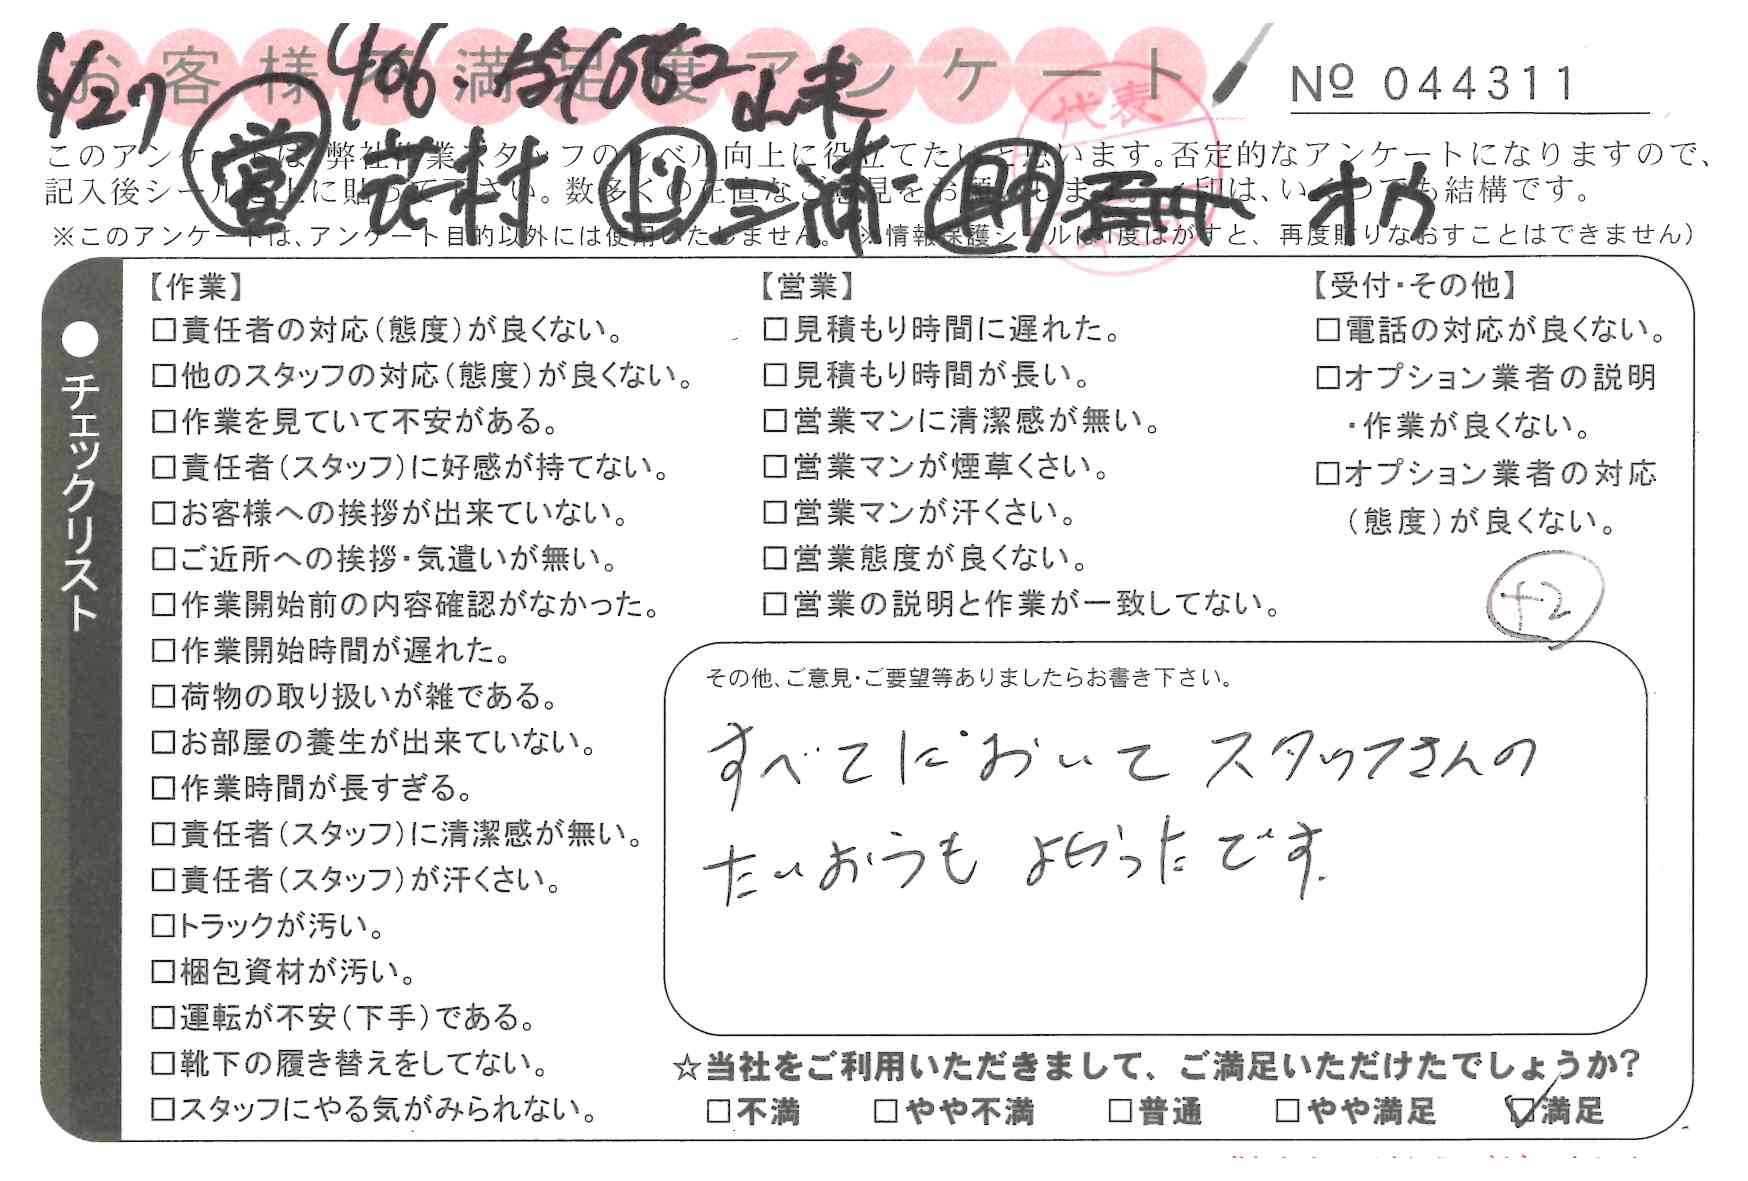 お客様不満足度アンケート
№ 044311
6/27
代表
営 花村 三浦
このアンケートは、弊社作業スタッフのレベル向上に役立てたいと思います。否定的なアンケートになりますので、
記入後シールを上に貼って下さい。数多くの正直なご意見をお願いします。✓印は、いくつでも結構です。
※このアンケートは、アンケート目的以外には使用いたしません。(※情報保護シールは1度はがすと、再度貼りなおすことはできません)
●チェックリスト
【作業】
□責任者の対応(態度)が良くない。
□他のスタッフの対応(態度)が良くない。
□作業を見ていて不安がある。
□責任者(スタッフ)に好感が持てない。
□お客様への挨拶が出来ていない。
□ご近所への挨拶・気遣いが無い。
□作業開始前の内容確認がなかった。
□作業開始時間が遅れた。
□荷物の取り扱いが雑である。
□お部屋の養生が出来ていない。
□作業時間が長すぎる。
□責任者(スタッフ)に清潔感が無い。
□責任者(スタッフ)が汗くさい。
□トラックが汚い。
□梱包資材が汚い。
□運転が不安(下手)である。
□靴下の履き替えをしてない。
□スタッフにやる気がみられない。
【営業】
□見積もり時間に遅れた。
□見積もり時間が長い。
□営業マンに清潔感が無い。
□営業マンが煙草くさい。
□営業マンが汗くさい。
□営業態度が良くない。
□営業の説明と作業が一致してない。
【受付・その他】
□電話の対応が良くない。
□オプション業者の説明
・作業が良くない。
□オプション業者の対応
(態度)が良くない。
+2
その他、ご意見・ご要望等ありましたらお書き下さい。
すべてにおいて スタッフさんの
たいおうも よかったです.
☆当社をご利用いただきまして、ご満足いただけたでしょうか?
□不満 □やや不満 □普通 □やや満足 ☑満足